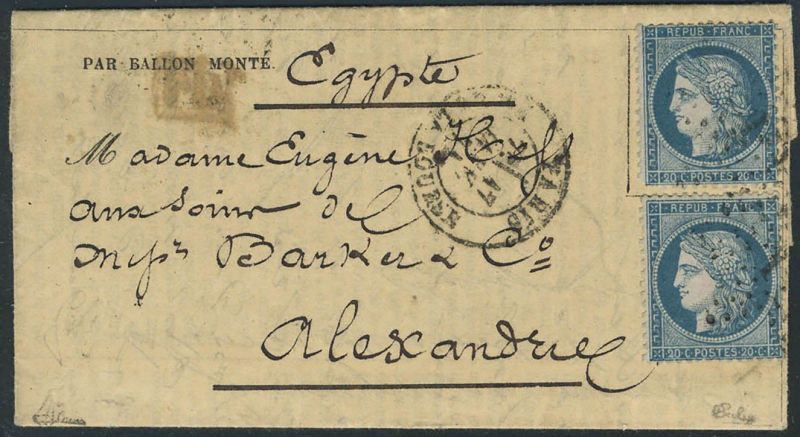 REPUB·FRANC·
PAR BALLON MONTÉ
Egypte
Madame Eugène
aux soins de
Mess.rs Barker & Co
Alexandrie
PARIS
20·C·POSTES·20·C·
REPUB·FRANC·
20·C·POSTES·20·C·